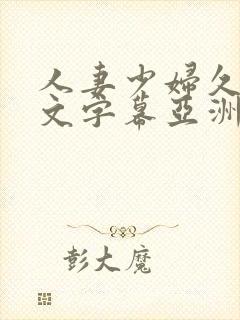 人妻少婦久
文字幕亞洲
彭大魔